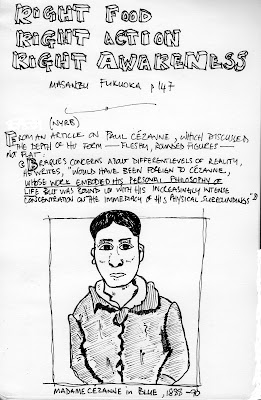 RIGHT FOOD
RIGHT ACTION
RIGHT AWARENESS
MASANBU FUKUOKA p 147
(NYRB)
FROM AN ARTICLE ON PAUL CÉZANNE, WHICH DISCUSSED
THE DEPTH OF HIS FORM — FLESHY, ROUNDED FIGURES —
NOT FLAT.
BRAQUE'S CONCERNS ABOUT DIFFERENT LEVELS OF REALITY,
HE WRITES, "WOULD HAVE BEEN FOREIGN TO CÉZANNE,
WHOSE WORK EMBODIED HIS PERSONAL PHILOSOPHY OF
LIFE BUT WAS BOUND UP WITH HIS INCREASINGLY INTENSE
CONCENTRATION ON THE IMMEDIACY OF HIS PHYSICAL SURROUNDINGS"
MADAME CÉZANNE in BLUE, 1888-90